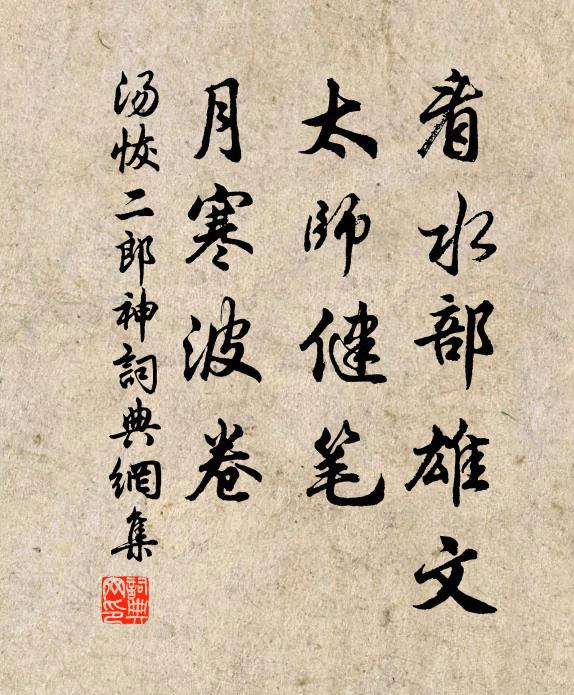 看水部雄文
太师健笔
月寒波卷
汤恢二郎神詞典網集
詞典網印